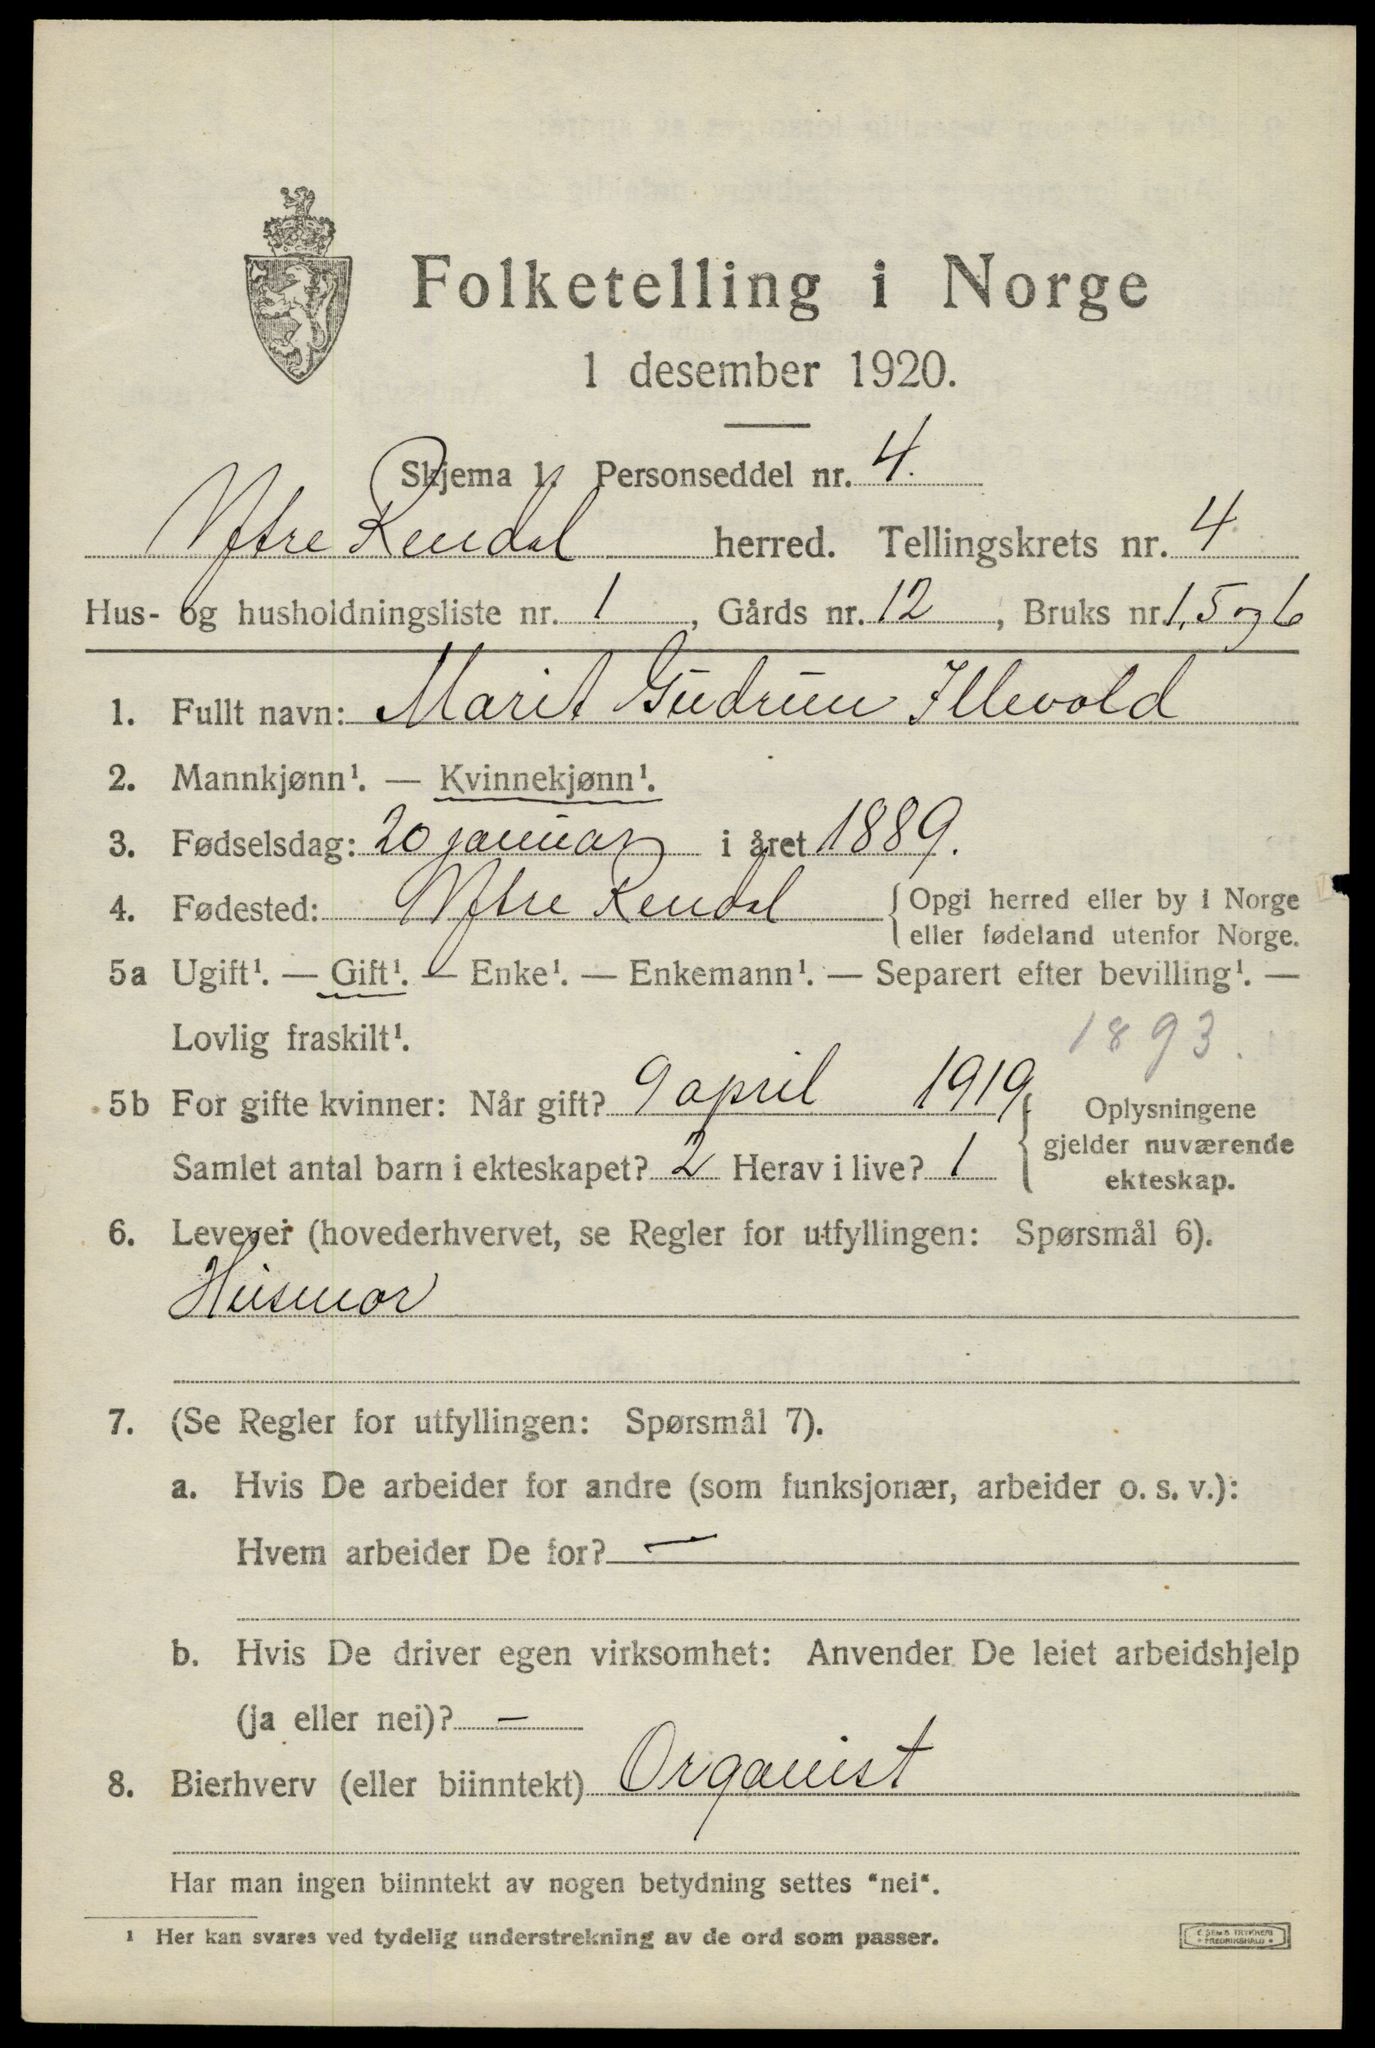 Folketelling i Norge
1 desember 1920.
Skjema 1. Personseddel nr. 4.
Ytre Rendal herred. Tellingskrets nr. 4
Hus- og husholdningsliste nr. 1, Gårds nr. 12, Bruks nr. 1, 5 og 6
1. Fullt navn: Marit Gudrun Illevold
2. Mannkjønn¹. — Kvinnekjønn¹.
3. Fødselsdag: 20 januar i året 1889.
4. Fødested: Ytre Rendal { Opgi herred eller by i Norge
eller fødeland utenfor Norge.
5a Ugift¹. — Gift¹. — Enke¹. — Enkemann¹. — Separert efter bevilling¹. —
Lovlig fraskilt¹. 1893.
5b For gifte kvinner: Når gift? 9 april 1919 { Oplysningene
gjelder nuværende
Samlet antal barn i ekteskapet? 2 Herav i live? 1
ekteskap.
6. Levevei (hovederhvervet, se Regler for utfyllingen: Spørsmål 6).
Husmor
7. (Se Regler for utfyllingen: Spørsmål 7).
a. Hvis De arbeider for andre (som funksjonær, arbeider o. s. v.):
Hvem arbeider De for? —
b. Hvis De driver egen virksomhet: Anvender De leiet arbeidshjelp
(ja eller nei)? —
8. Bierhverv (eller biinntekt) Organist
Har man ingen biinntekt av nogen betydning settes "nei".
¹ Her kan svares ved tydelig understrekning av de ord som passer.
E. SEMS TRYKKERI
* FREDRIKSHALD *